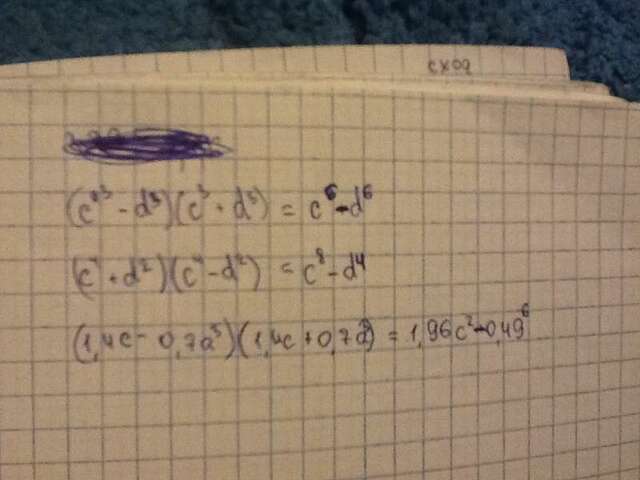 сход
(c³ - d³)(c³ + d³) = c⁶ - d⁶
(c⁴ + d²)(c⁴ - d²) = c⁸ - d⁴
(1,4c - 0,7d³)(1,4c + 0,7d³) = 1,96c² - 0,49⁶